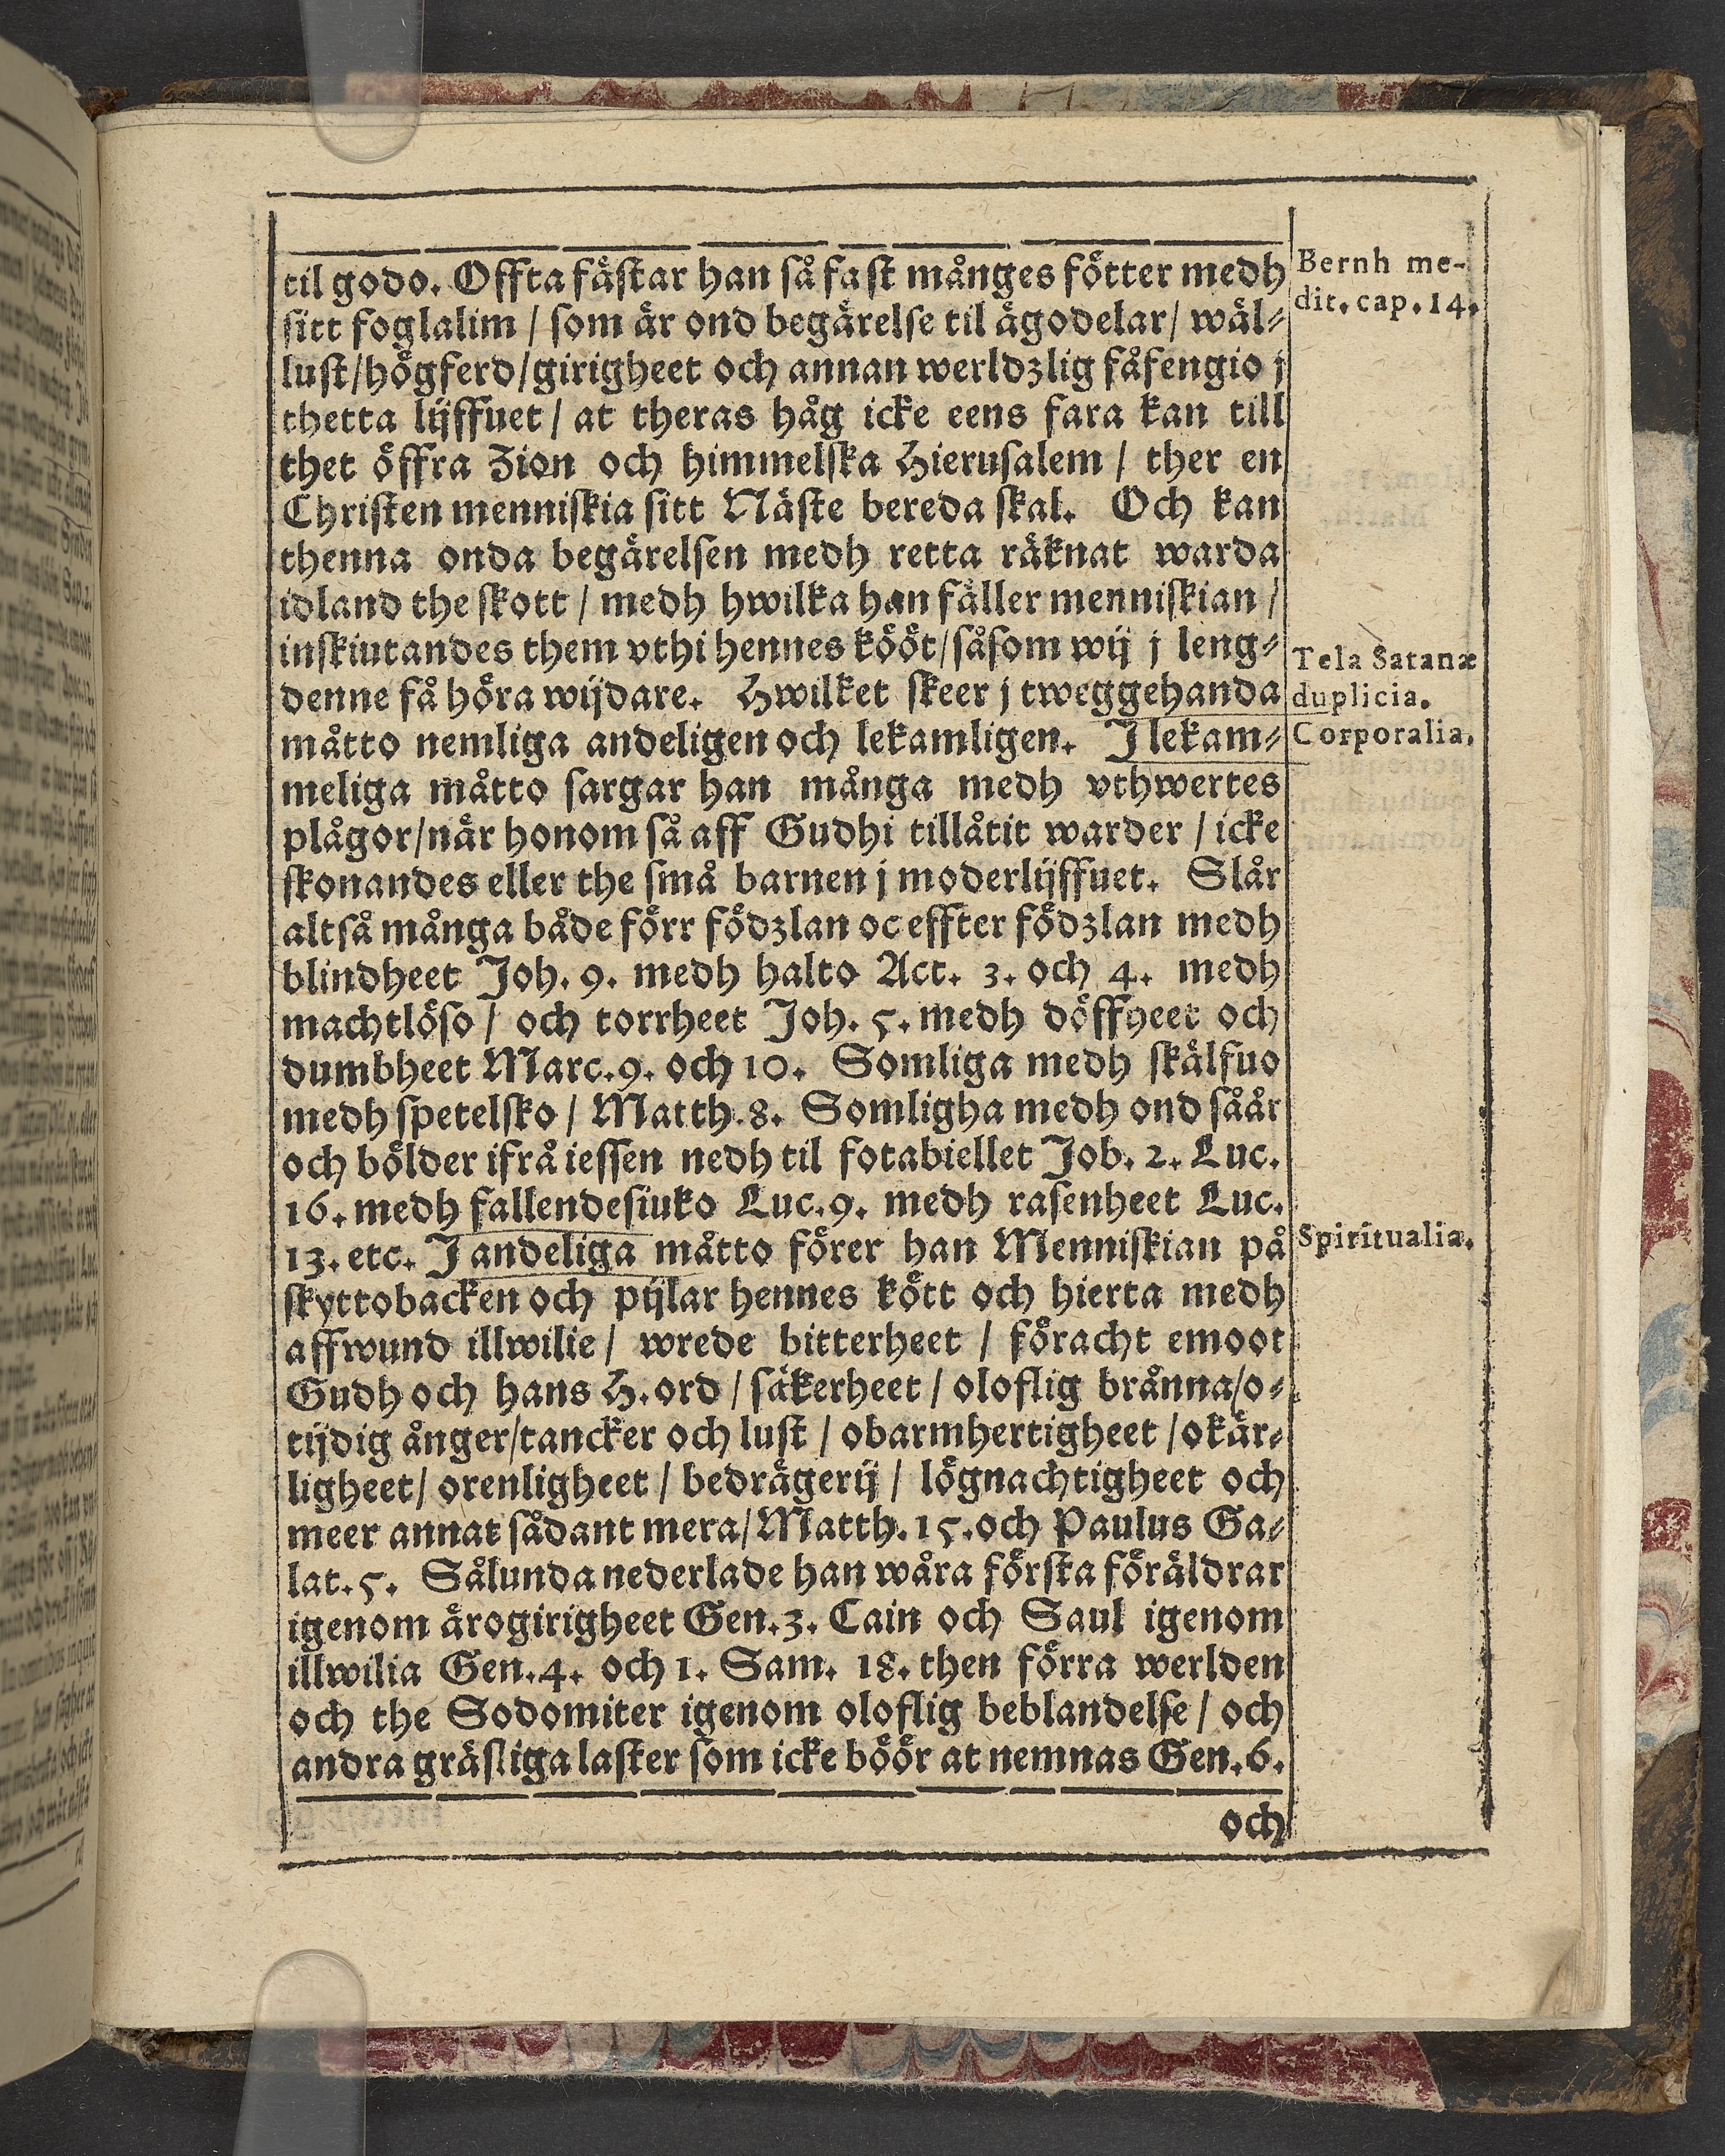 til godo. Offta fästar han så fast månges fötter medh
sitt foglalim / som är ond begärelse til ägodelar/ wäl-
lust/högferd/girigheet och annan werldzlig fåfengio j
thetta lijffuet / at theras håg icke eens fara kan till
thet öffra Zion och himmelska Hierusalem / ther en
Christen menniskia sitt Näste bereda skal. Och kan
thenna onda begärelsen medh retta räknat warda
idland the skott / medh hwilka han fäller menniskian /
inskiutandes them vthi hennes kööt/såsom wij j leng-
denne få höra wijdare. Hwilket skeer j tweggehanda
måtto nemliga andeligen och lekamligen. J lekam-
meliga måtto sargar han många medh vthwertes
plågor/när honom så aff Gudhi tillåtit warder / icke
skonandes eller the små barnen j moderlijffuet. Slår
altså många både förr födzlan oc effter födzlan medh
blindheet Joh. 9. medh halto Act. 3. och 4. medh
machtlöso / och torrheet Joh. 5. medh döffheet och
dumbheet Marc. 9. och 10. Somliga medh skälfuo
medh spetelsko / Matth. 8. Somligha medh ond såår
och bölder ifrå iessen nedh til fotabiellet Job. 2. Luc.
16. medh fallendesiuko Luc. 9. medh rasenheet Luc.
13. etc. J andeliga måtto förer han Menniskian på
skyttobacken och pijlar hennes kött och hierta medh
affwund illwilie / wrede bitterheet / föracht emoot
Gudh och hans H. ord / säkerheet / oloflig brånna/o-
tijdig ånger/tancker och lust / obarmhertigheet / okär-
ligheet/ orenligheet / bedrägerij / lögnachtigheet och
meer annat sådant mera/ Matth. 15. och Paulus Ga-
lat. 5. Sålunda nederlade han wåra första föräldrar
igenom ärogirigheet Gen. 3. Cain och Saul igenom
illwilia Gen. 4. och 1. Sam. 18. then förra werlden
och the Sodomiter igenom oloflig beblandelse / och
andra gräsliga laster som icke böör at nemnas Gen. 6.
och
Bernh me-
dit. cap. 14.
Tela Satanæ
duplicia.
Corporalia.
Spiritualia.